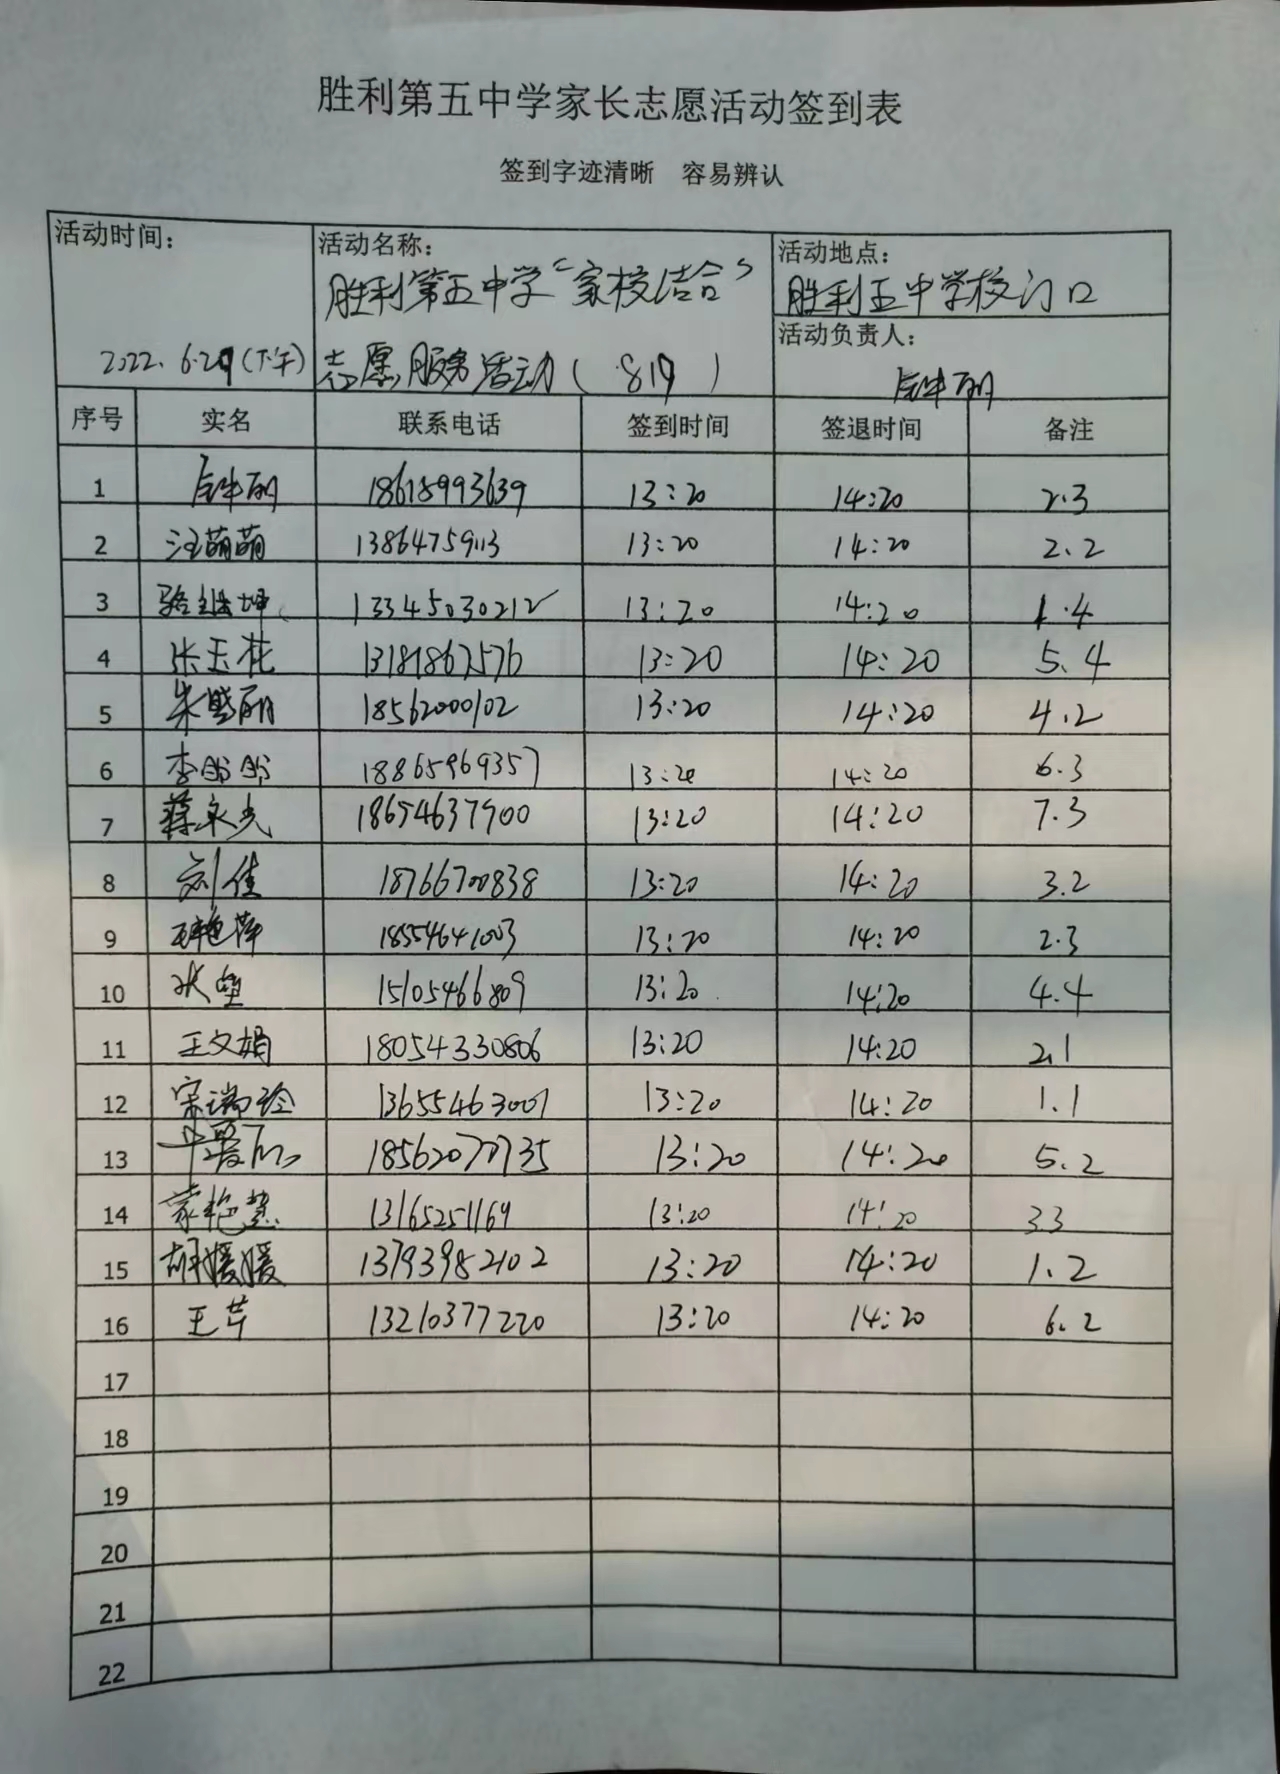 胜利第五中学家长志愿活动签到表
签到字迹清晰 容易辨认
活动时间：
2022.6.29(下午)
活动名称：
胜利第五中学“家校结合”
志愿服务活动( 819 )
活动地点：
胜利五中学校门口
活动负责人：
序号 实名 联系电话 签到时间 签退时间 备注
1 18615993639 13:20 14:20 2.3
2 汪萌萌 13864759113 13:20 14:20 2.2
3 骆继坤 13345030212 13:20 14:20 1.4
4 张玉花 13181867576 13:20 14:20 5.4
5 朱晓丽 18562000102 13:20 14:20 4.2
6 李 18865969357 13:20 14:20 6.3
7 蒋永光 18654637900 13:20 14:20 7.3
8 刘佳 18766700838 13:20 14:20 3.2
9 18554641003 13:20 14:20 2.3
10 15105466809 13:20 14:20 4.4
11 王文娟 18054330806 13:20 14:20 2.1
12 宋瑞玲 13655463001 13:20 14:20 1.1
13 13:20 14:20 5.2
14 蒙艳慧 13165251169 13:20 14:20 3.3
15 胡媛媛 13793982102 13:20 14:20 1.2
16 王芹 13210377220 13:20 14:20 6.2
17
18
19
20
21
22